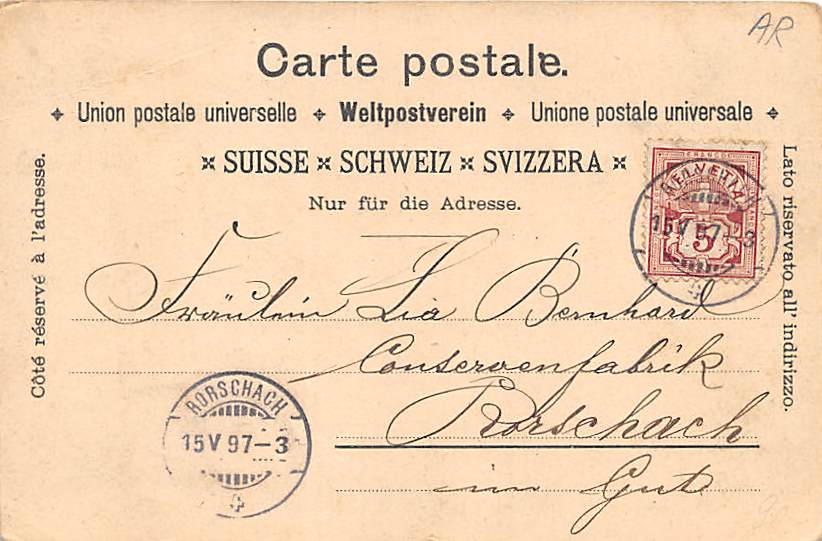 AR
Carte postale.
Union postale universelle Weltpostverein Unione postale universale
SUISSE SCHWEIZ SVIZZERA
Nur für die Adresse.
Côté réservé à l'adresse.
Lato riservato all' indirizzo.
HELVETIA
15 V 97-3
5
Fräulein Lia Bernhard
Conservenfabrik
Rorschach
im Gut
RORSCHACH
15 V 97-3